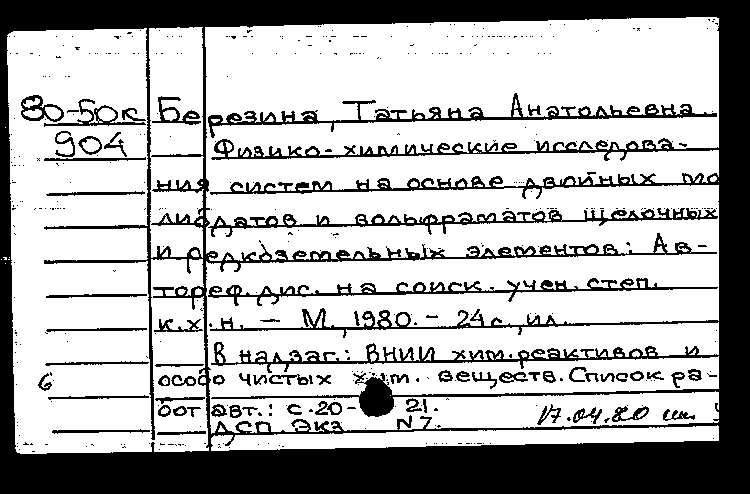 80-50к Березина, Татьяна Анатольевна
904 Физико-химические исследова-
ния систем на основе двойных мо
либдатов и вольфраматов щелочных
и редкоземельных элементов: Ав-
тореф. дис. на соиск. учен. степ.
к.х.н. - М., 1980. - 24 с., ил.
В надзаг.: ВНИИ хим. реактивов и
6 особо чистых хим. веществ. Список ра-
бот авт.: с. 20-21.
ДСП. Экз N7. 17.04.80